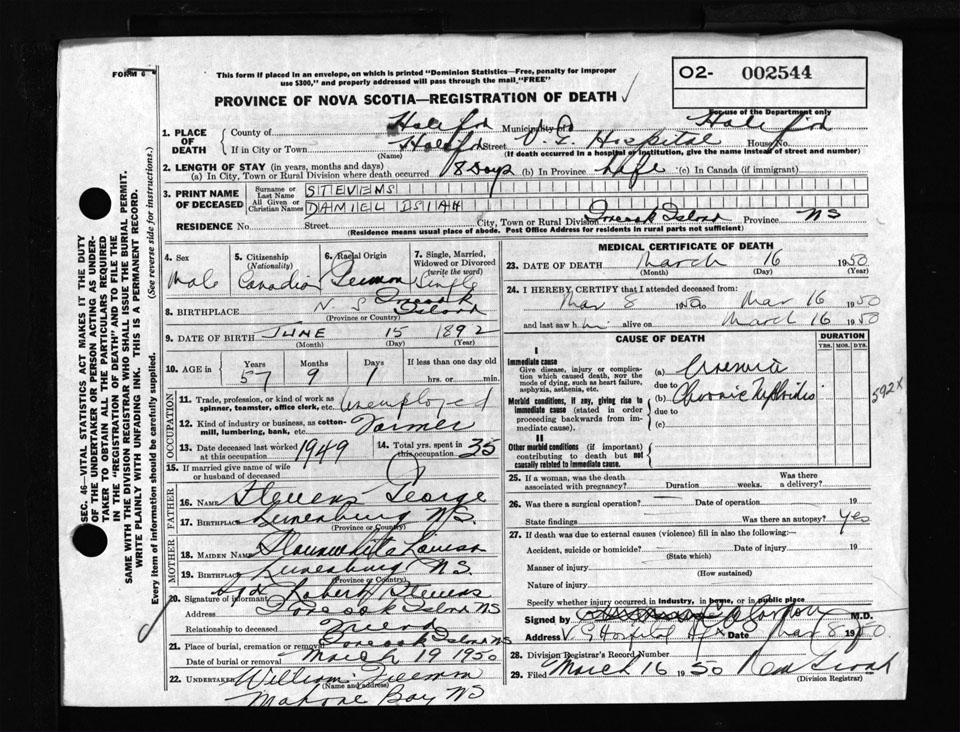 FORM 6
This form if placed in an envelope, on which is printed "Dominion Statistics—Free, penalty for improper
use $300," and properly addressed will pass through the mail "FREE"
O2- 002544
PROVINCE OF NOVA SCOTIA—REGISTRATION OF DEATH ✓
For use of the Department only
1. PLACE OF DEATH
County of Halifax Municipality of Halifax
If in City or Town Halifax Street V. G. Hospital House No.
(Name) (If death occurred in a hospital or institution, give the name instead of street and number)
2. LENGTH OF STAY (in years, months and days)
(a) In City, Town or Rural Division where death occurred 8 Days (b) In Province Life (c) In Canada (if immigrant)
3. PRINT NAME OF DECEASED
Surname or Last Name STEVENS
All Given or Christian Names DANIEL ISIAH
RESIDENCE No. Street City, Town or Rural Division Island Province NS
(Residence means usual place of abode. Post Office Address for residents in rural parts not sufficient)
4. Sex Male
5. Citizenship (Nationality) Canadian
6. Racial Origin German
7. Single, Married, Widowed or Divorced (write the word) Single
8. BIRTHPLACE N. S. Island
(Province or Country)
9. DATE OF BIRTH JUNE 15 1892
(Month) (Day) (Year)
10. AGE in Years Months Days If less than one day old
57 9 1 hrs. or min.
OCCUPATION
11. Trade, profession or kind of work as spinner, teamster, office clerk, etc. Unemployed
12. Kind of industry or business, as cotton-mill, lumbering, bank, etc. Farmer
13. Date deceased last worked at this occupation 1949
14. Total yrs. spent in this occupation 35
15. If married give name of wife or husband of deceased
FATHER
16. Name Stevens George
17. Birthplace Lunenburg N.S.
(Province or Country)
MOTHER
18. Maiden Name Louisa
19. Birthplace Lunenburg N.S.
(Province or Country)
20. Signature of informant Sgd Robert Stevens
Address Island NS
Relationship to deceased Friend
21. Place of burial, cremation or removal Island NS
Date of burial or removal March 19 1950
22. UNDERTAKER William
(Name and address)
Mahone Bay NS
MEDICAL CERTIFICATE OF DEATH
23. DATE OF DEATH March 16 1950
(Month) (Day) (Year)
24. I HEREBY CERTIFY that I attended deceased from:
Mar 8 1950 to Mar 16 1950
and last saw him alive on March 16 1950
CAUSE OF DEATH
DURATION
YRS. MOS. DYS.
I
Immediate cause
Give disease, injury or complication which caused death, not the mode of dying, such as heart failure, asphyxia, asthenia, etc.
(a) Uraemia
due to
Morbid conditions, if any, giving rise to immediate cause (stated in order proceeding backwards from immediate cause).
(b) Chronic Nephritis
due to
(c)
592X
II
Other morbid conditions (if important) contributing to death but not causally related to immediate cause.
25. If a woman, was the death associated with pregnancy? Duration weeks. Was there a delivery?
26. Was there a surgical operation? Date of operation 19
State findings Was there an autopsy? yes
27. If death was due to external causes (violence) fill in also the following:—
Accident, suicide or homicide? Date of injury 19
(State which)
Manner of injury
(How sustained)
Nature of injury
Specify whether injury occurred in Industry, in home, or in public place
Signed by M.D.
Address V. G Hospital Hfx Date Mar 8 1950
28. Division Registrar's Record Number
29. Filed March 16 1950
(Division Registrar)
SEC. 46—VITAL STATISTICS ACT MAKES IT THE DUTY
OF THE UNDERTAKER OR PERSON ACTING AS UNDER-
TAKER TO OBTAIN ALL THE PARTICULARS REQUIRED
IN THE "REGISTRATION OF DEATH" AND TO FILE THE
SAME WITH THE DIVISION REGISTRAR WHO SHALL ISSUE THE BURIAL PERMIT.
WRITE PLAINLY WITH UNFADING INK. THIS IS A PERMANENT RECORD.
Every item of information should be carefully supplied. (See reverse side for instructions.)